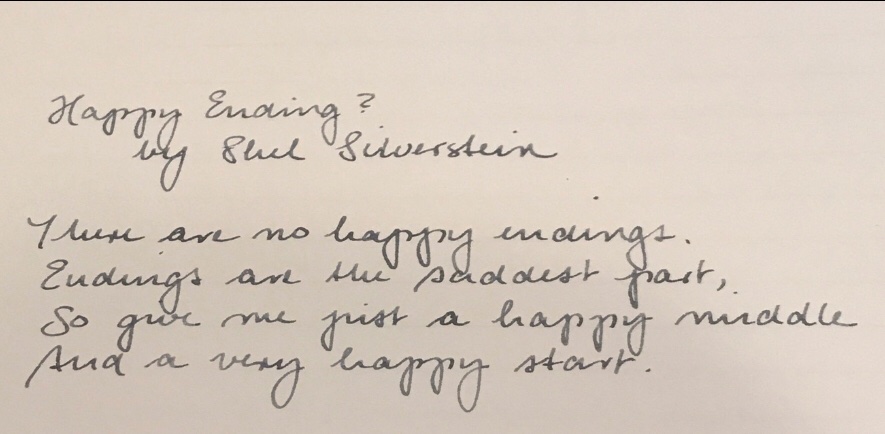 Happy Ending?
by Shel Silverstein
There are no happy endings.
Endings are the saddest part,
So give me just a happy middle
And a very happy start.